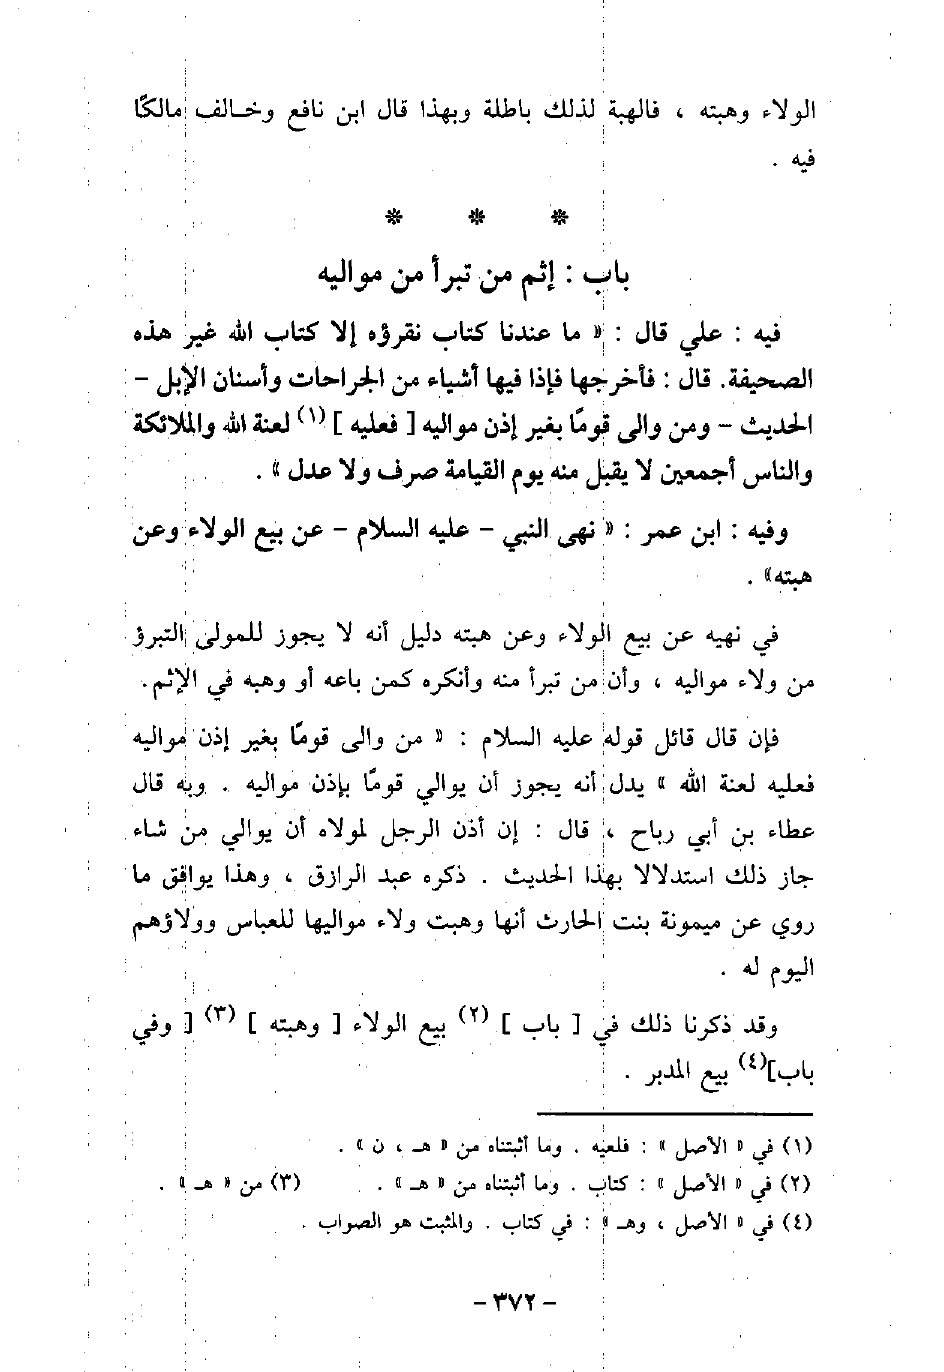 الولاء وهبته ، فالهبة لذلك باطلة وبهذا قال ابن نافع وخالف مالكًا
فيه .
* * *
باب : إثم من تبرأ من مواليه
فيه : علي قال : « ما عندنا كتاب نقرؤه إلا كتاب الله غير هذه
الصحيفة. قال : فأخرجها فإذا فيها أشياء من الجراحات وأسنان الإبل -
الحديث - ومن والى قومًا بغير إذن مواليه [ فعليه ] (١) لعنة الله والملائكة
والناس أجمعين لا يقبل منه يوم القيامة صرف ولا عدل » .
وفيه : ابن عمر : « نهى النبي - عليه السلام - عن بيع الولاء وعن
هبته» .
في نهيه عن بيع الولاء وعن هبته دليل أنه لا يجوز للمولى التبرؤ
من ولاء مواليه ، وأن من تبرأ منه وأنكره كمن باعه أو وهبه في الإثم.
فإن قال قائل قوله عليه السلام : « من والى قومًا بغير إذن مواليه
فعليه لعنة الله » يدل أنه يجوز أن يوالي قومًا بإذن مواليه . وبه قال
عطاء بن أبي رباح ، قال : إن أذن الرجل لمولاه أن يوالي من شاء
جاز ذلك استدلالا بهذا الحديث . ذكره عبد الرازق ، وهذا يوافق ما
روي عن ميمونة بنت الحارث أنها وهبت ولاء مواليها للعباس وولاؤهم
اليوم له .
وقد ذكرنا ذلك في [ باب ] (٢) بيع الولاء [ وهبته ] (٣) [ وفي
باب](٤) بيع المدبر .
(١) في « الأصل » : فلعيه . وما أثبتناه من « هـ ، ن » .
(٢) في « الأصل » : كتاب . وما أثبتناه من « هـ » . (٣) من « هـ » .
(٤) في « الأصل ، وهـ » : في كتاب . والمثبت هو الصواب .
- ٣٧٢ -